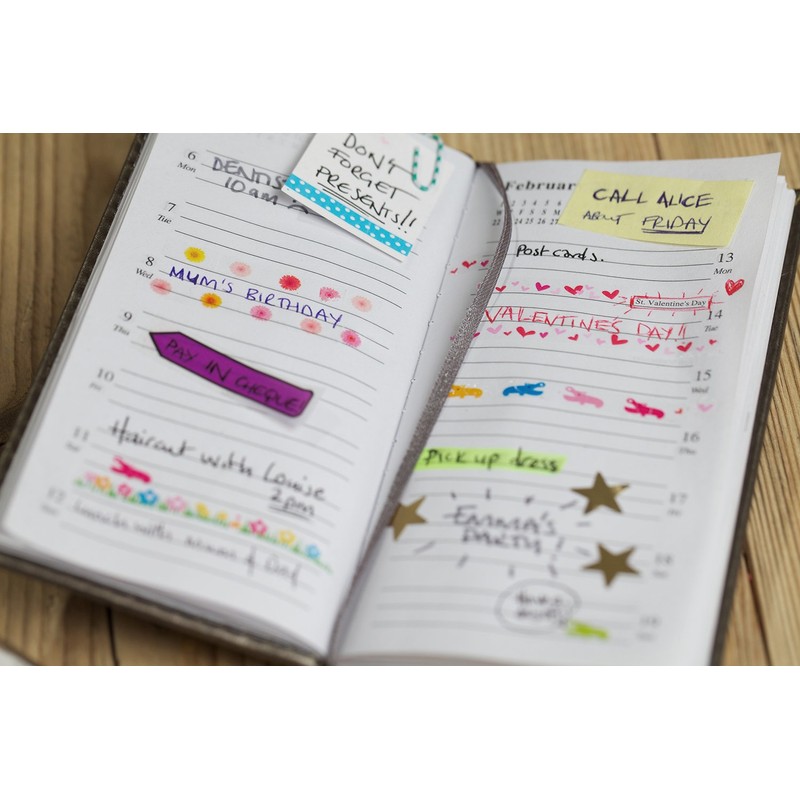 6
Mon
DENTIS
10am
DON'T
FORGET
PRESENTS!!
7
Tue
8
Wed
MUM'S BIRTHDAY
9
Thu
PAY IN CHEQUE
10
Fri
11
Haircut with Louise
2pm
12
Februar
CALL ALICE
ABOUT FRIDAY
Postcards.
13
Mon
St. Valentine's Day
14
Tue
VALENTINE'S DAY!!
15
Wed
16
Thu
Pick up dress
17
EMMA'S
PARTY!
18
19